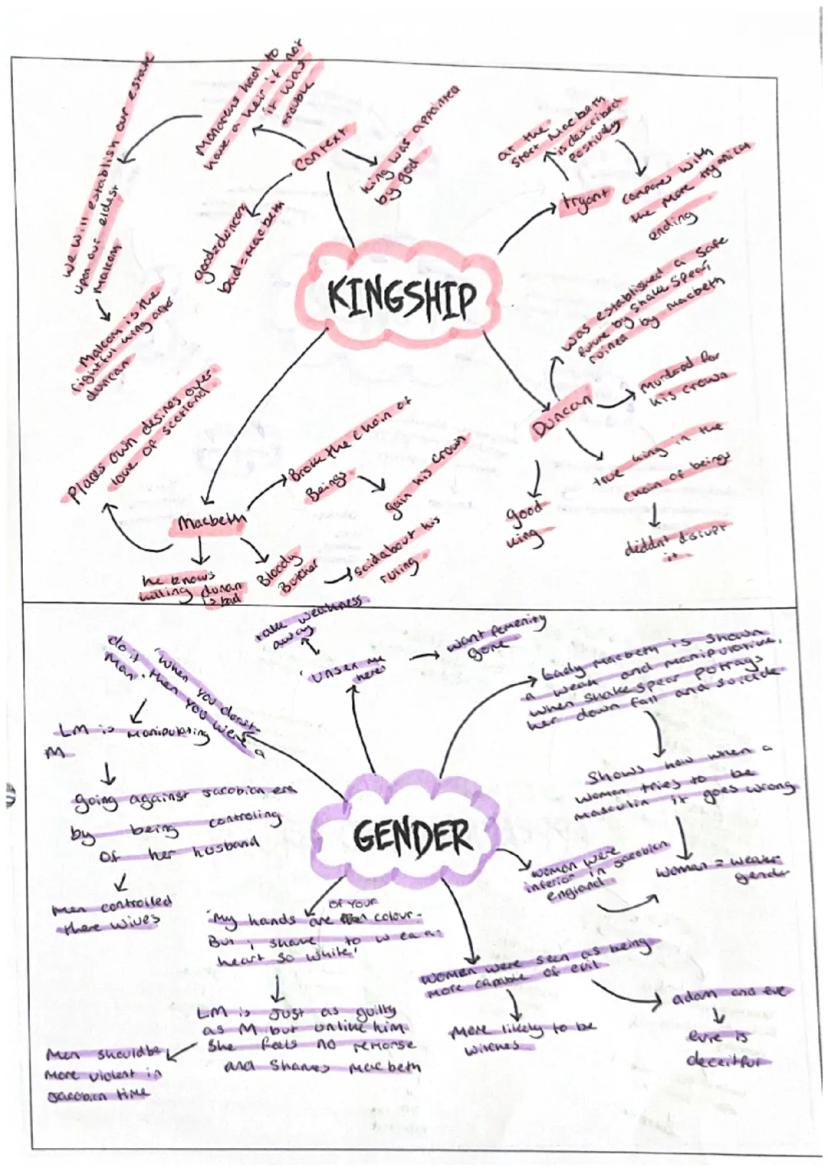 KINGSHIP
Context
Monarchs had to
have a heir if not
it was
unstable
we will establish our estate
upon our eldest
Malcom
Malcom is the
rightful king after
duncan
good=duncan
bad=macbeth
King was appointed
by god
tryant
at the
start Macbeth
is described
positively
compares with
the more tryanical
ending
Duncan
was established a safe
future by shakespear,
ruined by Macbeth
Murdrod for
his crown
true king in the
chain of beings
diddnt disrupt
it
good
king
Macbeth
Places own desires over
love of scotland
he knows
killing dunan
is bad
Broke the chain of
Beings
gain his crown
Bloody
Butcher
said about his
ruling
GENDER
'When you durst
do it, then you were a
man'
LM is manipulating
M
going against Jacobian era
by being controling
of her husband
Men controlled
there wives
'unsex me
here'
take weakness
away
want femening
gone
Lady Macbeth is shown
a weak and manipulative,
when shakespear potrays
her down fall and suicide
Shows how when a
women tries to be
masculin it goes wrong
woman = weaker
gender
woman were
inferior in jacobian
england
women were seen as being
more capable of evil
More likely to be
witches
adam and eve
eve is
deceitful
'My hands are of your colour -
But i shame to wear a
heart so white'
LM is just as guilty
as M but unlike him.
She feels no remorse
and shames Macbeth
Men should be
more violent in
Jacobian time